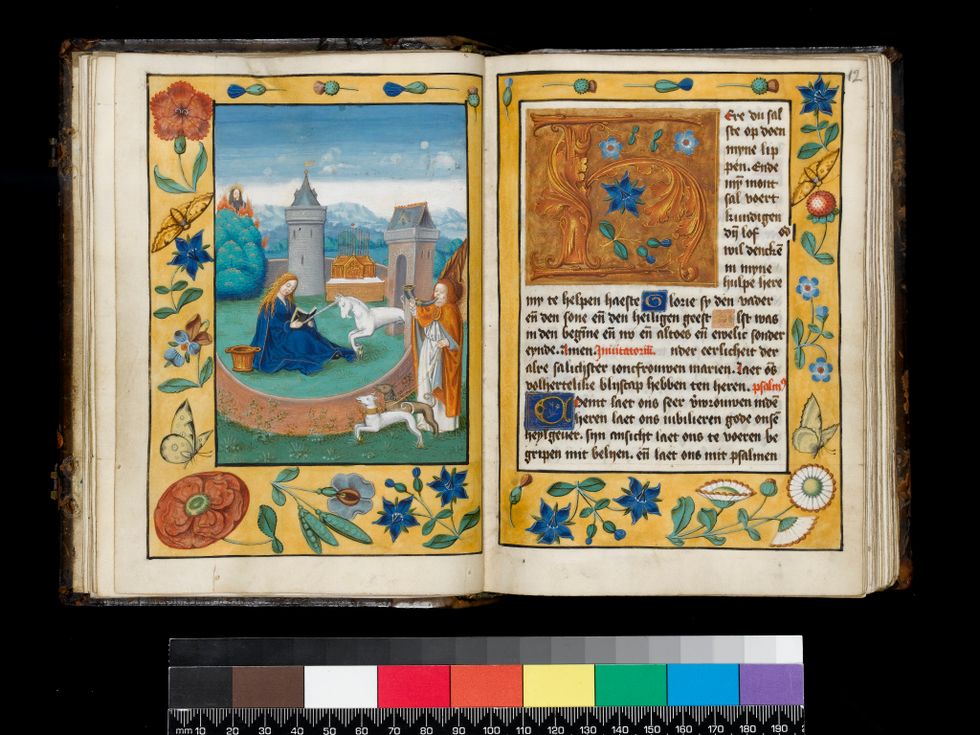 12
Ere du sal
ste op doen
myne lip
pen. Ende
mȳ mont
sal voert
kundigen
dȳ lof
wil denckē
in myne
hulpe here
my te helpen haeste Glorie sy den vader
eñ den sone eñ den heiligen geest Alst was
in den begīne eñ nv eñ altoes eñ ewelic sonder
eynde. Amen. Inuitatoriū. nder eerlicheit der
alre salichster ioncfrouwen marien. Laet ōs
volhertelike blijscap hebben ten heren. psalmꝰ
Coemt laet ons seer v̄vrouwen indē
heren laet ons iubilieren gode onsē
heylgeuer. sijn ansicht laet ons te voeren be
gripen mit belyen. eñ laet ons mit psalmen
mm 10 20 30 40 50 60 70 80 90 100 110 120 130 140 150 160 170 180 190